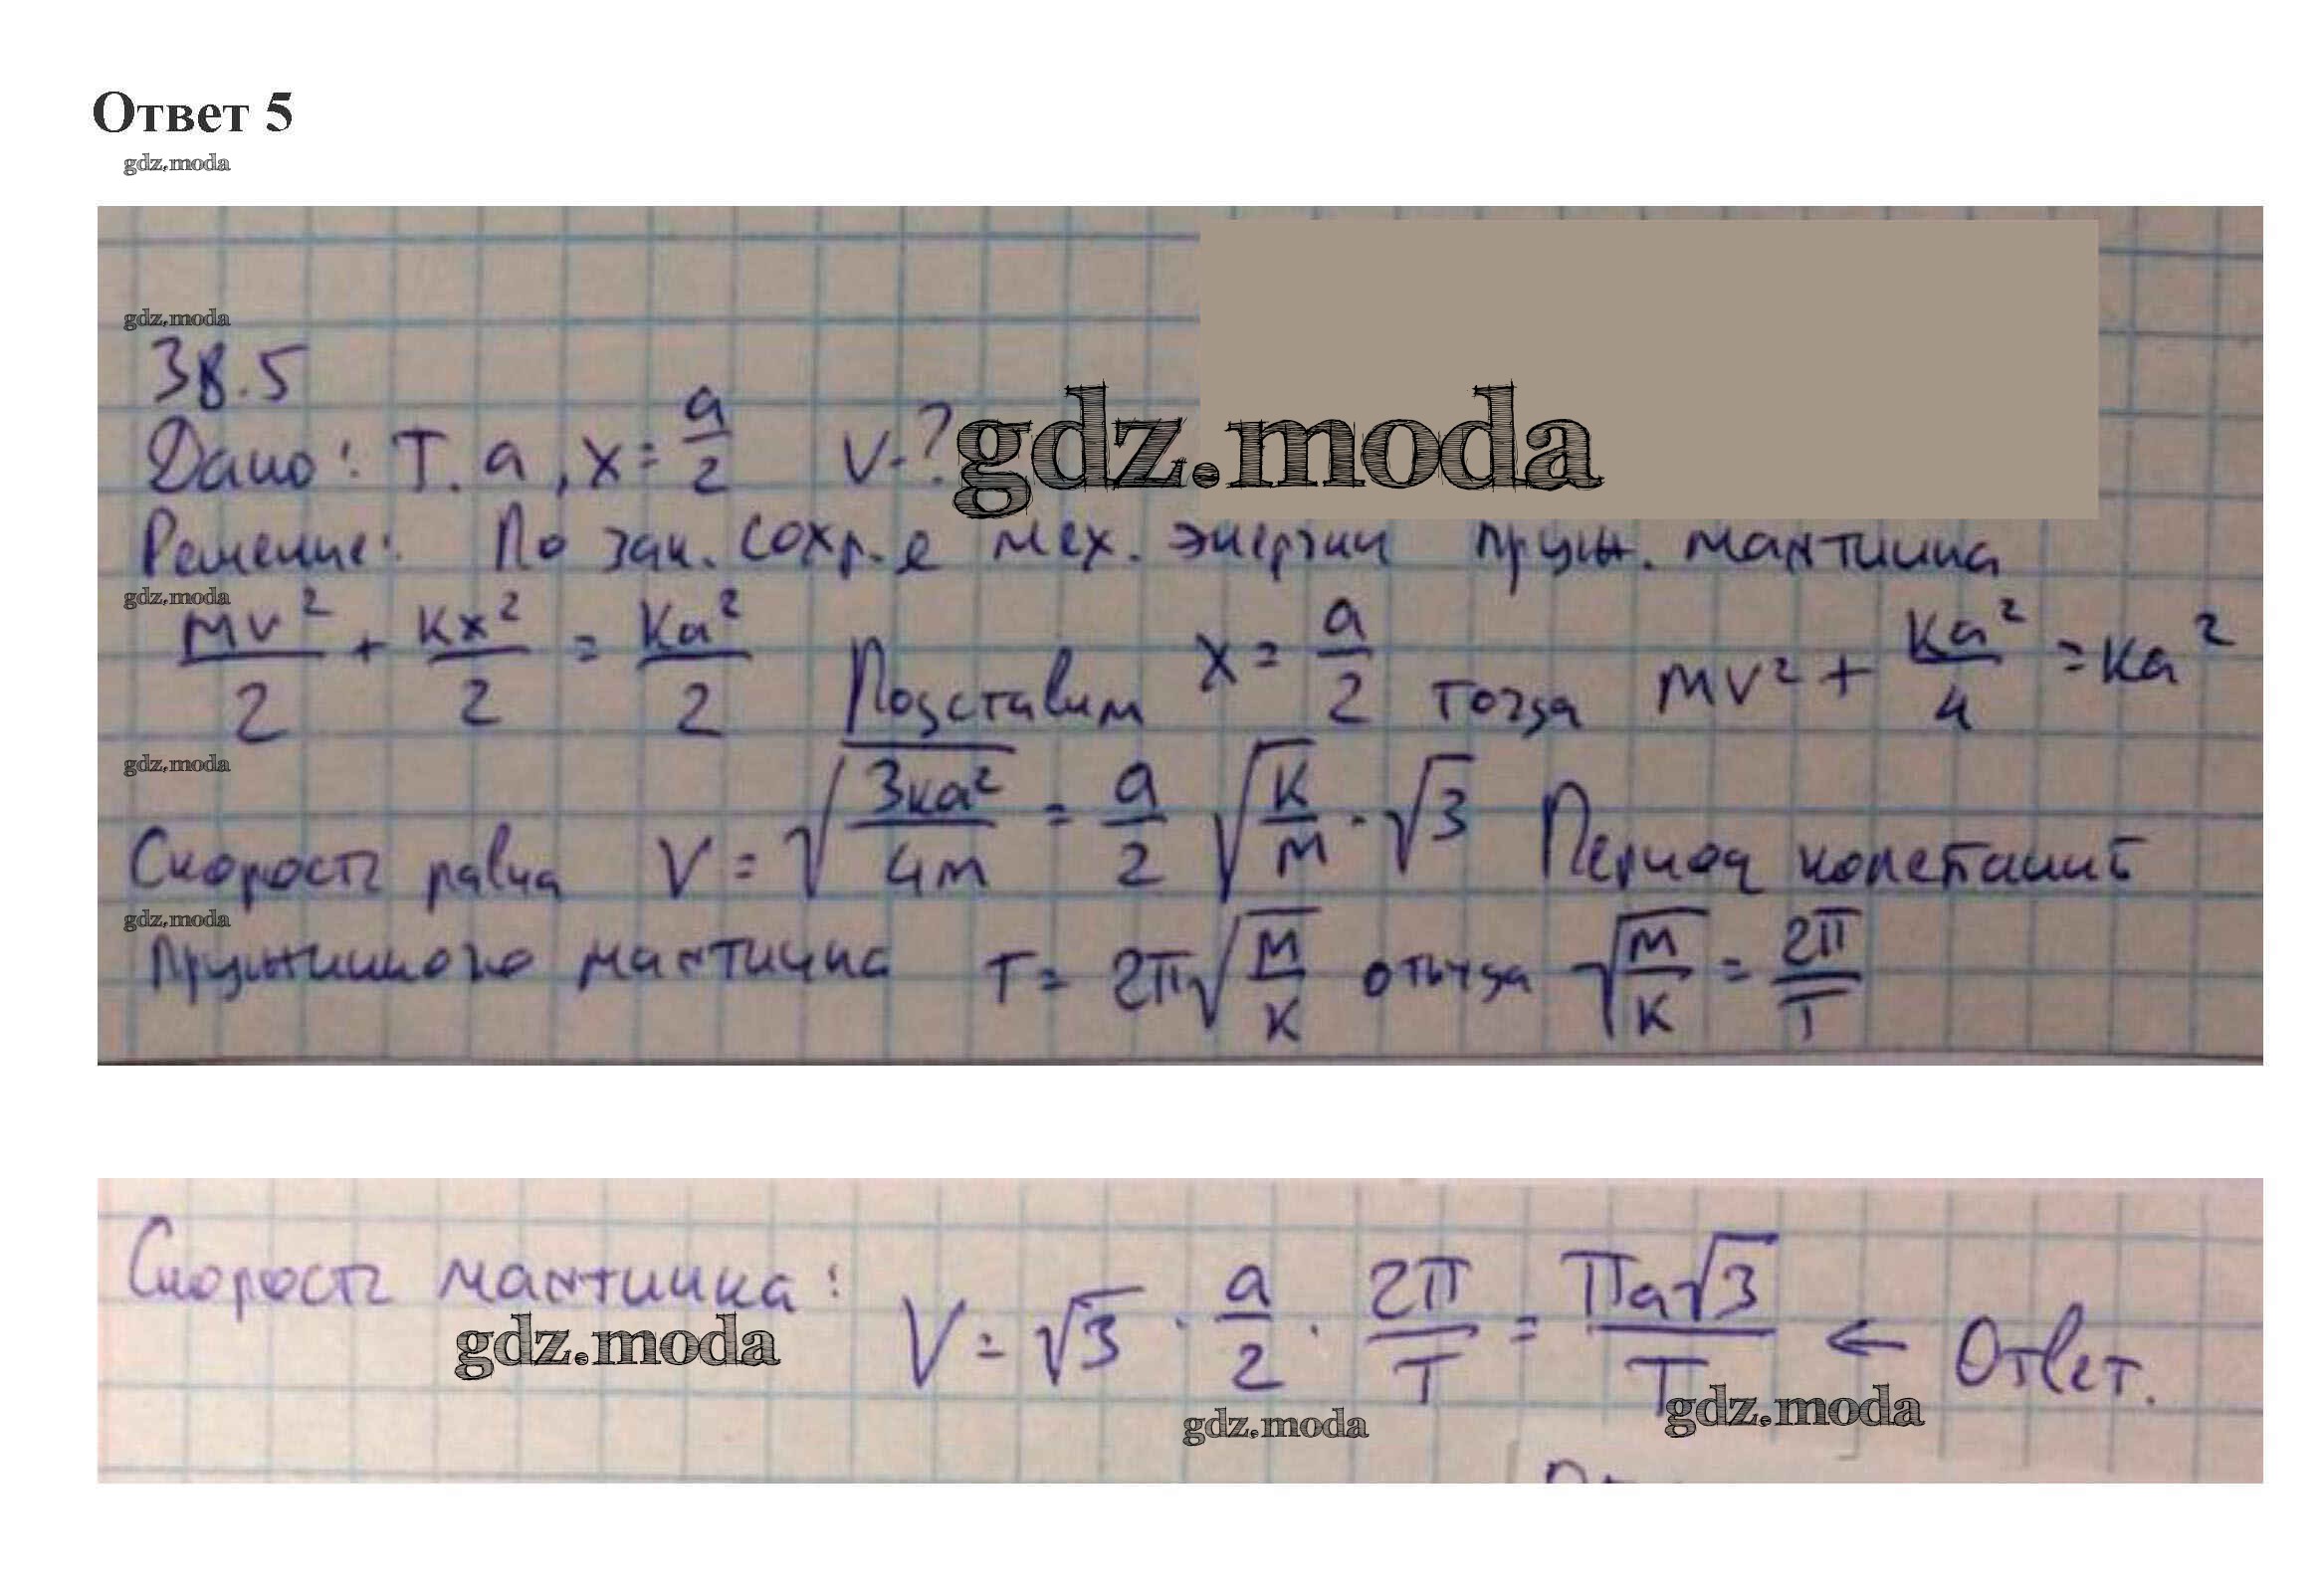 Ответ 5
gdz.moda
gdz.moda
38.5
Дано: T. a, x = a/2 v-? gdz.moda
Решение: По зак. сохр-е мех. энергии пруж. маятника
gdz.moda
mv²/2 + kx²/2 = ka²/2 Подставим x = a/2 тогда mv² + ka²/4 = ka²
gdz.moda
Скорость равна V = √(3ka²/4m) = a/2 √(k/m) · √3 Период колебаний
gdz.moda
пружинного маятника T = 2π√(m/k) откуда √(m/k) = 2π/T
Скорость маятника: V = √3 · a/2 · 2π/T = πa√3/T ← Ответ.
gdz.moda
gdz.moda
gdz.moda